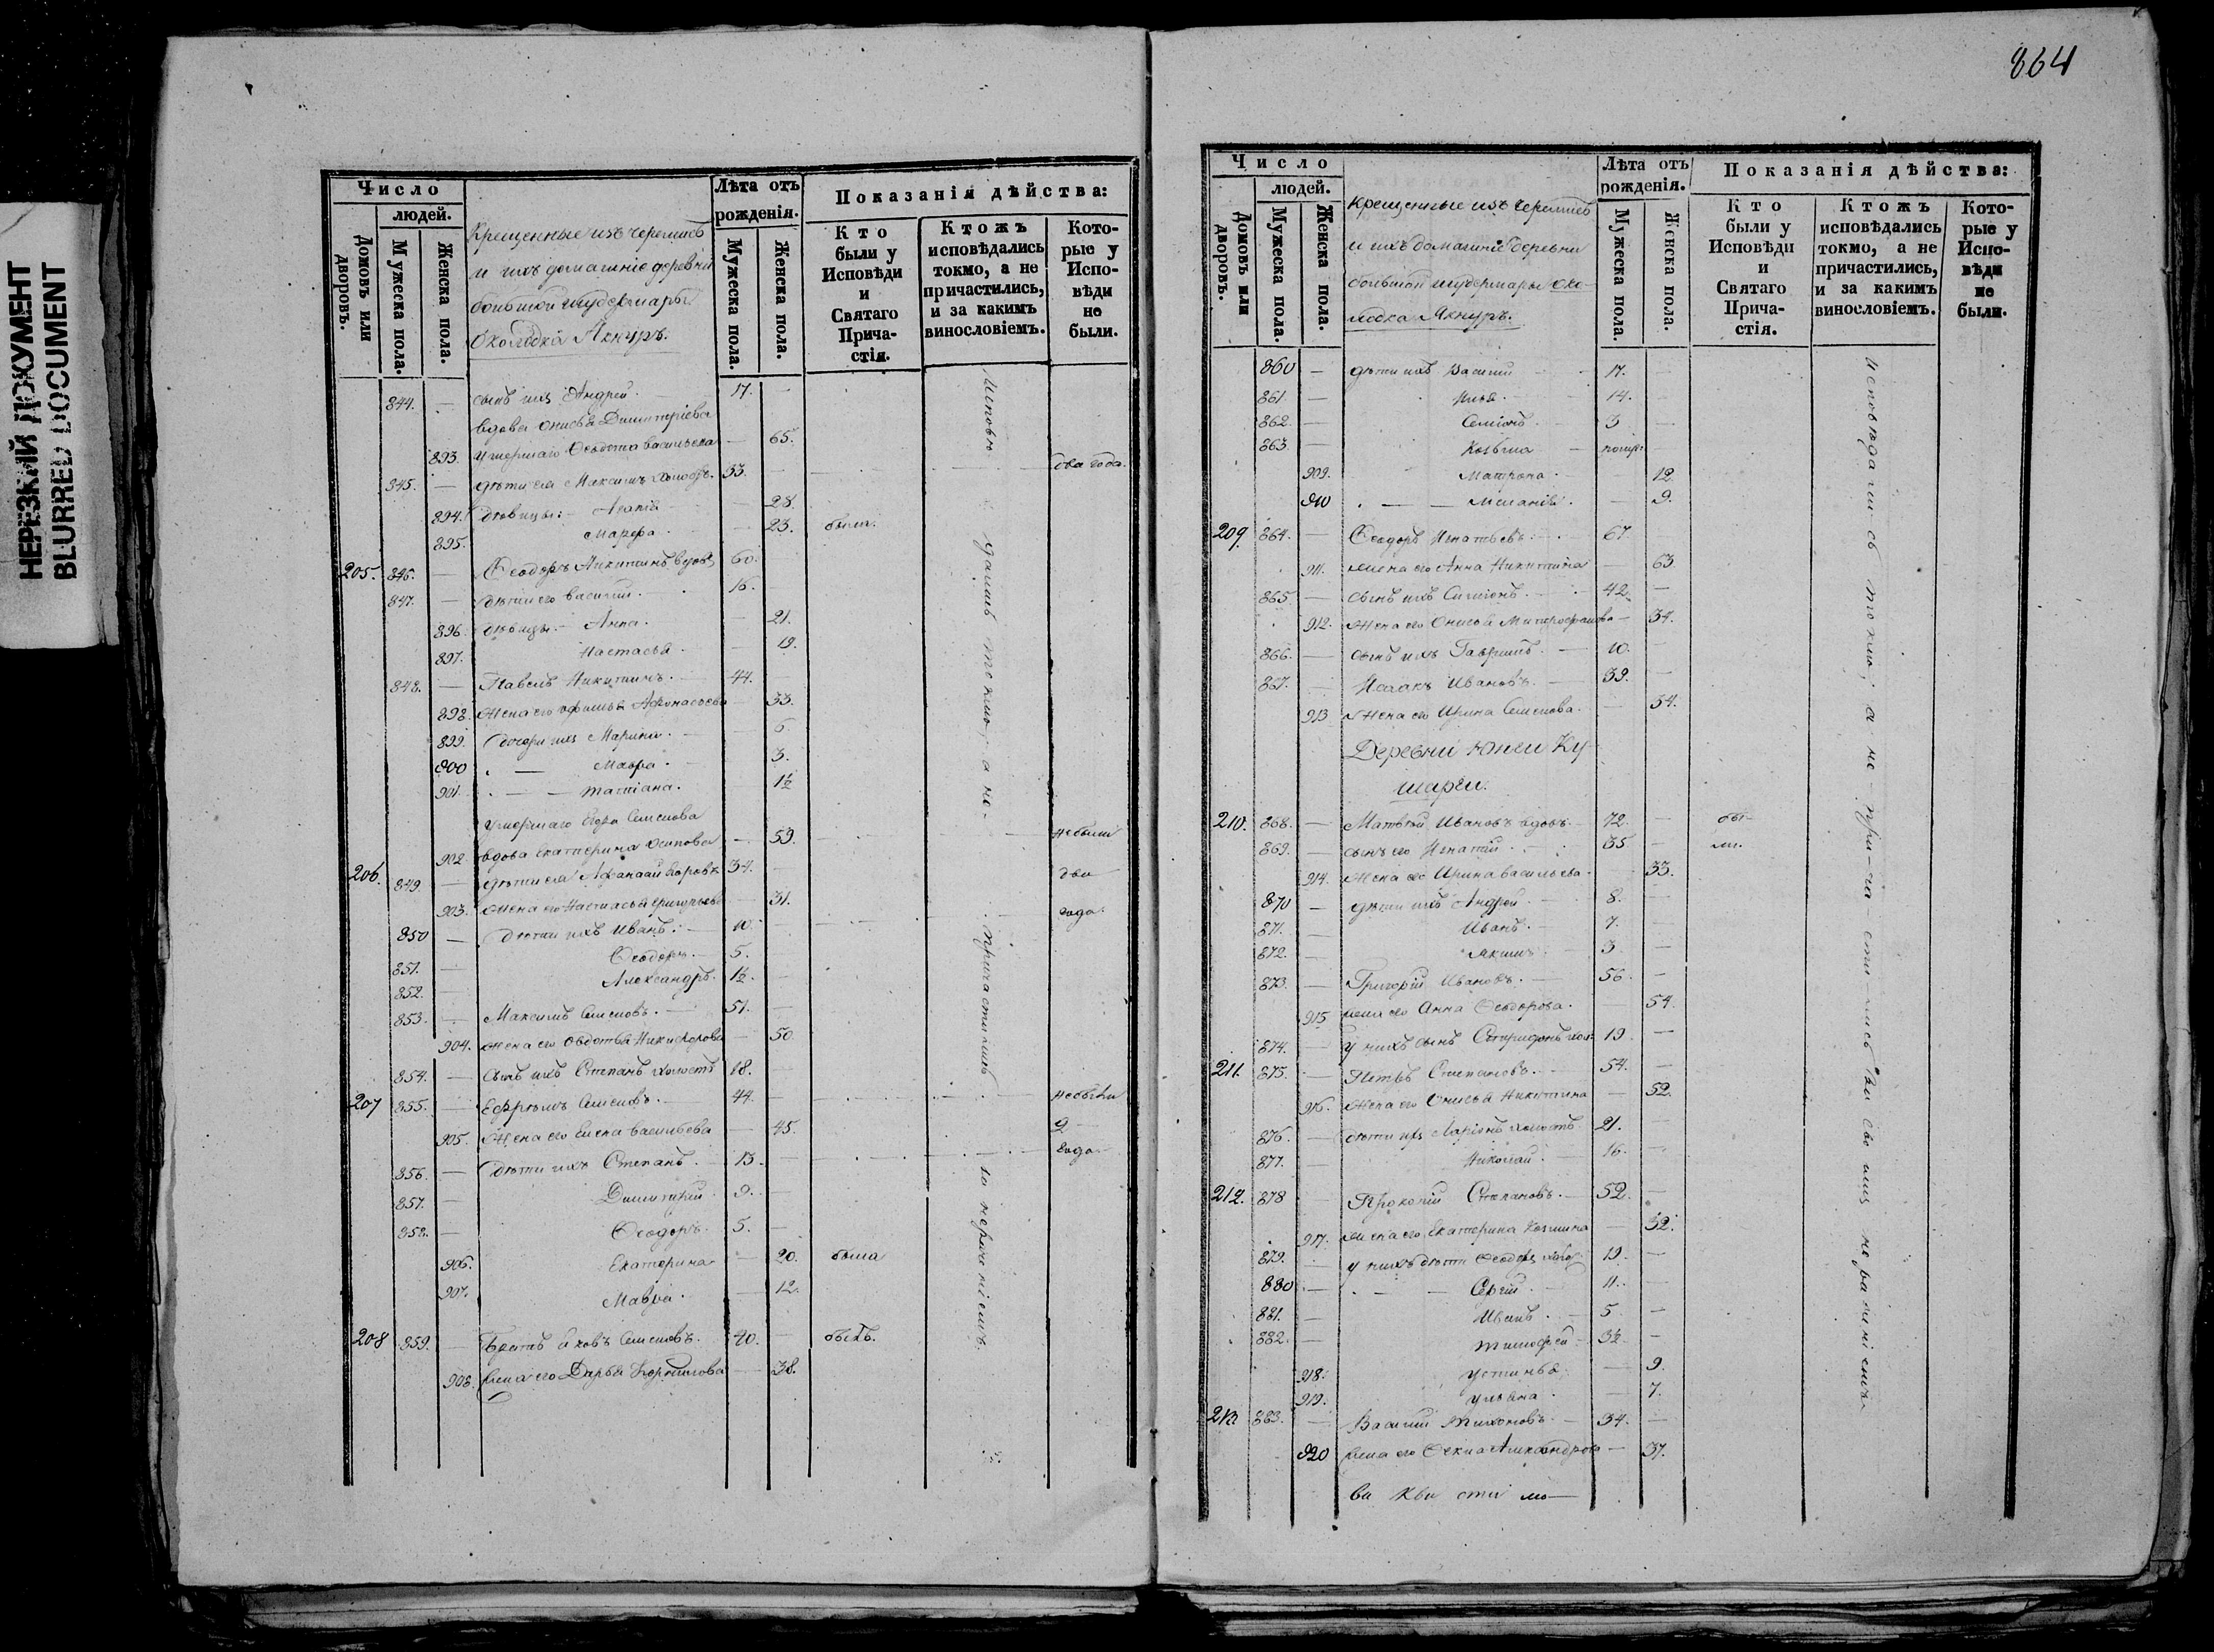 НЕРЕЗКИЙ ДОКУМЕНТ
BLURRED DOCUMENT
Число
людей.
Домовъ или дворовъ.
Мужеска пола.
Женска пола.
Крещенные изъ черемисъ
и ихъ домашніе деревни
большой шудермары
околодка Акнуръ.
Лѣта отъ рожденія.
Мужеска пола.
Женска пола.
Показанія дѣйства:
Кто были у Исповѣди и Святаго Причастія.
Ктожъ исповѣдались токмо, а не причастились, и за какимъ винословіемъ.
Которые у Исповѣди не были.
844. — сынъ ихъ Андрей. 17. —
вдова Онисья Димитріева
893. умершаго Ѳедота Васильева — 65.
два года.
845. — дѣти ея Максимъ холостъ. 33. —
894. дѣвицы: Агапія — 28
895. Марѳа. — 23. была.
205. 846. — Ѳеодоръ Никитинъ вдовъ 60.
847. — дѣти его Василій. 16. —
896. дѣвицы. Анна. — 21.
897. Настасья — 19.
848. — Павелъ Никитинъ. 44. —
898. жена его Афанасьева — 33.
899. дочери ихъ Марина. — 6
900 Мавра. — 3.
901. Татіана. 1½
умершаго Семенова
902. вдова Екатерина Осипова — 59. не были
206. 849. — дѣти ея Афанасій 34. — два
903. жена его Настасья Григорьева — 31. года.
850 — дѣти ихъ Иванъ. 10. —
851. — Ѳеодоръ. 5. —
852. — Александръ. 1½. —
853. — Максимъ Семеновъ. 51. —
904. жена его Овдотья Никифорова — 50
854. — сынъ ихъ Степанъ холостъ 18. —
207 855. — Ефремъ Семеновъ. 44. — не были
905. жена его Елена Васильева — 45. 2
года
856. — дѣти ихъ Степанъ. 13. —
857. — Димитрій 9. —
858. — Ѳеодоръ. 5. —
906. Екатерина — 20. была
907. Мавра. — 12.
208 859. — Братъ Яковъ Семеновъ. 40. — былъ.
908. жена его Дарья Корнилова — 38.
864
Число
людей.
Домовъ или дворовъ.
Мужеска пола.
Женска пола.
Крещенные изъ черемисъ
и ихъ домашніе деревни
большой шудермары око-
лодка Акнуръ.
Лѣта отъ рожденія.
Мужеска пола.
Женска пола.
Показанія дѣйства:
Кто были у Исповѣди и Святаго Причастія.
Ктожъ исповѣдались токмо, а не причастились, и за какимъ винословіемъ.
Которые у Исповѣди не были.
860 — дѣти ихъ Василій 17. —
861. — Илья. 14. —
862. — Семіонъ. 3 —
863. — Козьма —
909. Матрона. — 12
910 — 9.
209. 864. — Ѳеодоръ Игнатьевъ. 67
911. жена его Анна Никитина — 63
865. — сынъ ихъ Симіонъ. 42. —
912. жена его Онисья Митрофанова — 34.
866. — сынъ ихъ Гавріилъ. 10. —
867. — Исаакъ Ивановъ. 39. —
913 жена его Ирина Семенова. — 34.
Деревни Юнги Ку-
шерги.
210. 868. — Матвей Ивановъ вдовъ. 72. — бы-
869. — сынъ его Игнатій. 35 — ли.
914. жена его Ирина Васильева. — 33.
870 — дѣти ихъ Андрей. 8. —
871. — Иванъ. 7. —
872. — Якимъ. 3 —
873. — Григорій Ивановъ. 56. —
915 жена его Анна Ѳеодорова. — 54.
874. — у нихъ сынъ Спиридонъ хол. 19 —
211. 875. — Петръ Степановъ. 54. —
916. жена его Онисья Никитина — 52.
876. — дѣти ихъ Ларіонъ холостъ 21. —
877. — Николай. 16. —
212. 878 Прокопій Степановъ. 52. —
917. жена его Екатерина Козмина — 52.
879. — у нихъ дѣти Ѳеодоръ холос. 19. —
880 — Сергій. 11. —
881. — Иванъ. 5 —
882. — Тимоѳей. 3½. —
918. Устинья — 9.
919. Ульяна — 7.
213 883. — Василій Тихоновъ. 34. —
920 жена его Александрова — 37.
исповѣдались токмо, а не при-ча-сти-лись нераченіемъ